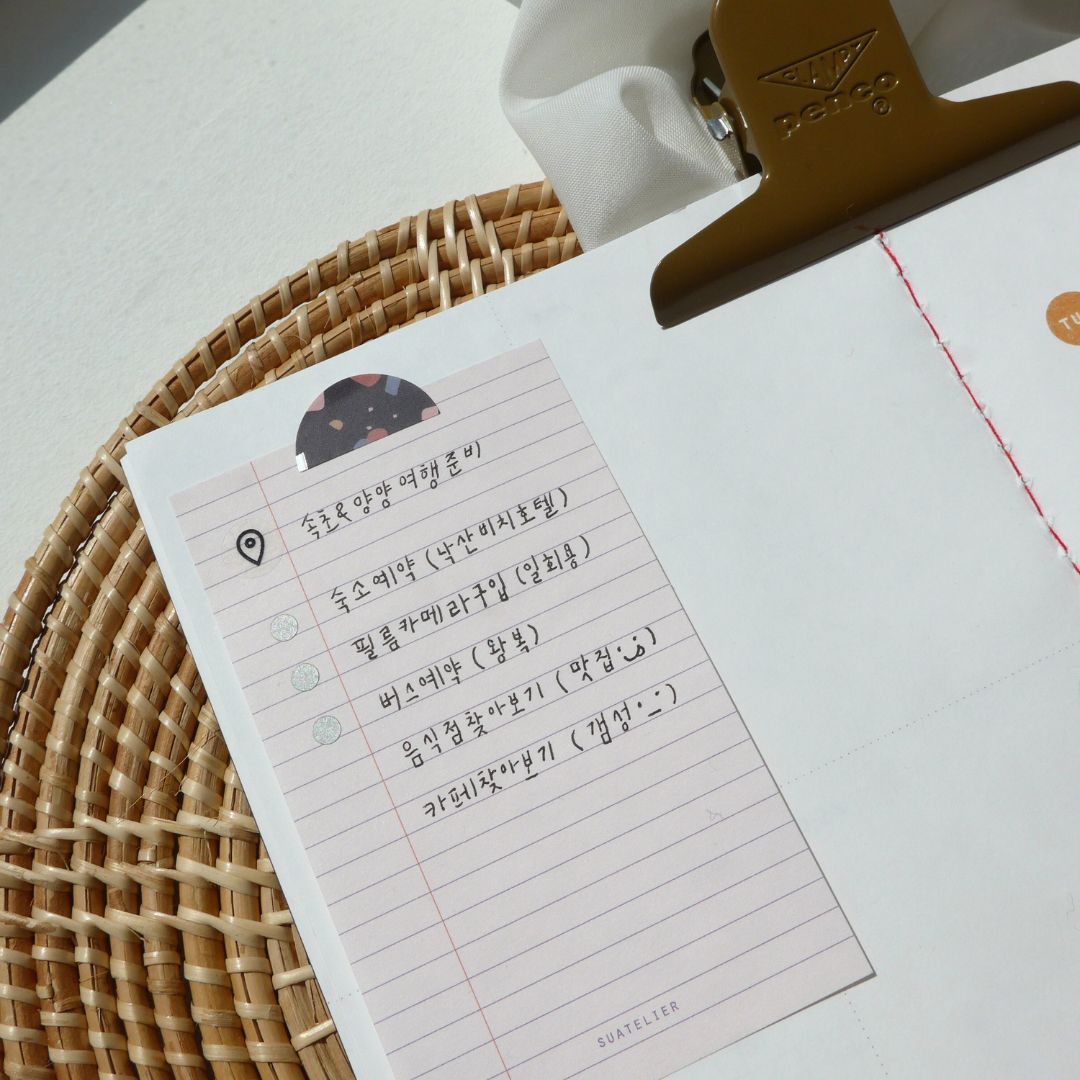 CLAMPY
penco®
TU
속초&양양 여행준비
숙소예약 (낙산비치호텔)
필름카메라구입 (일회용)
버스예약 (왕복)
음식점찾아보기 (맛집)
카페찾아보기 (갬성)
SUATELIER